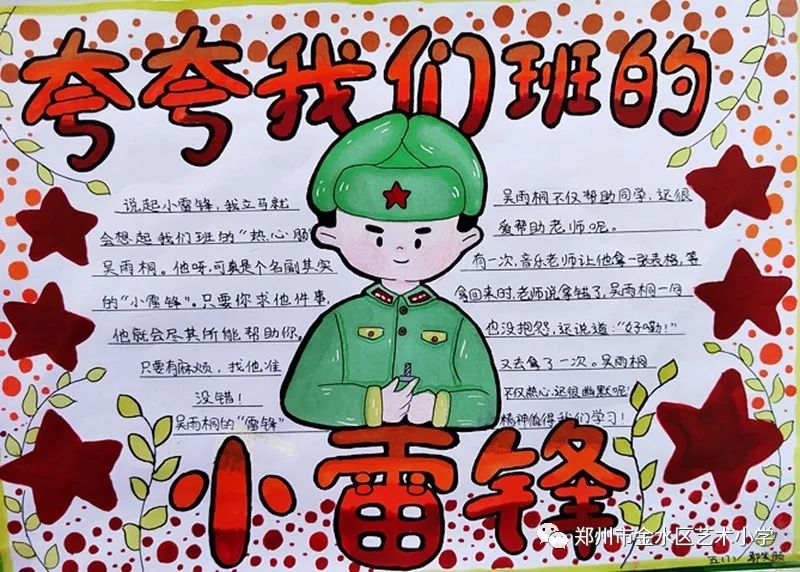 夸夸我们班的
说起小雷锋，我立马就
会想起我们班的“热心肠”
吴雨桐。他呀，可真是个名副其实
的“小雷锋”。只要你求他件事，
他就会尽其所能帮助你。
只要有麻烦，找他准
没错！
吴雨桐的“雷锋”
吴雨桐不仅帮助同学，还很
爱帮助老师呢。
有一次，音乐老师让他拿一张表格，等
拿回来时，老师说拿错了，吴雨桐一句
也没抱怨，还说道：“好嘞！”
又去拿了一次。吴雨桐
不仅热心，还很幽默呢！
精神值得我们学习！
小雷锋
郑州市金水区艺术小学
五（1）